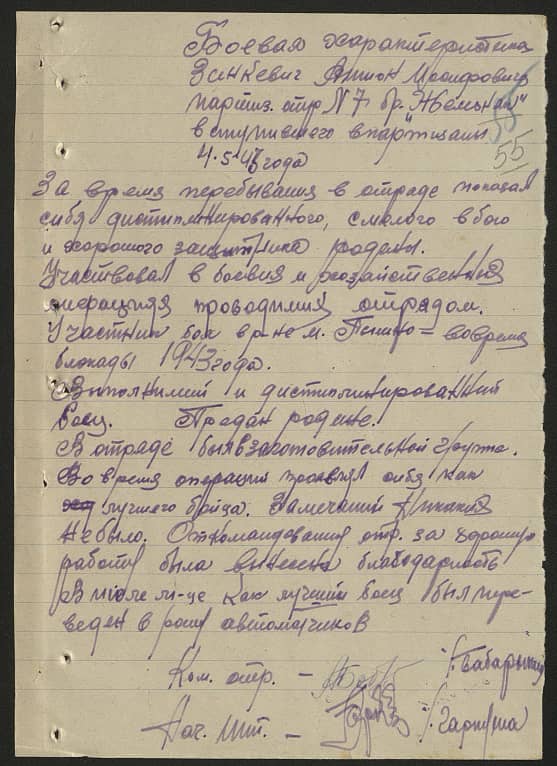 Боевая характеристика
Зинкевич Антон Иосифович
партиз. отр N 7 бр. "Железняк"
вступившего в партизаны
55
4.5.43 года
За время перебывания в отраде показал
сибя дистиплинированного, смелого в бою
и хорошого защитника родены.
Участвовал в боевия и хозайственния
оперыцыях проводимия отрядом.
Участник боя в р-не м. Пышно = вовремя
блокады 1943 года.
Выполнимий и дистиплинированний
боец. Предан родине.
В отраде был в заготовительной групе.
Во время операций проявлял сибя как
лучшего бойца. Замечаний никакия
не было. От командования отр. за хорошую
работу была вынесена благодарность
В июле м-це как лучший боец был пере-
веден в роту автоматчиков
Ком. отр. -
Нач. Шт. - /. Гаркуша